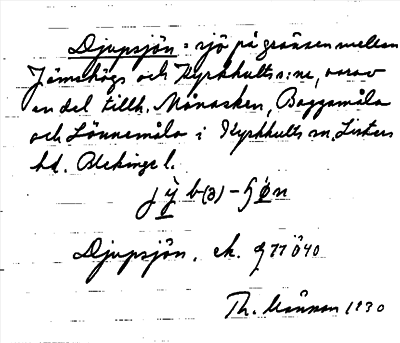 Djupsjön = sjö på gränsen mellan
Jämshögs och Kyrkhults s:nr, varav
en del tillh. Månasken, Baggamåla
och Lönnemåla i Kyrkhults sn, Listers
hd. Blekinge l.
Djupsjön. ek. 977 Ö 40
Th. 1930